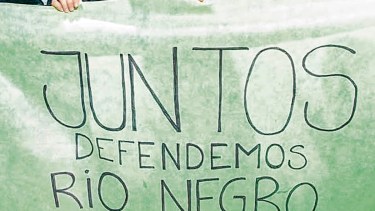 JUNTOS
DEFENDEMOS
RIO NEGRO